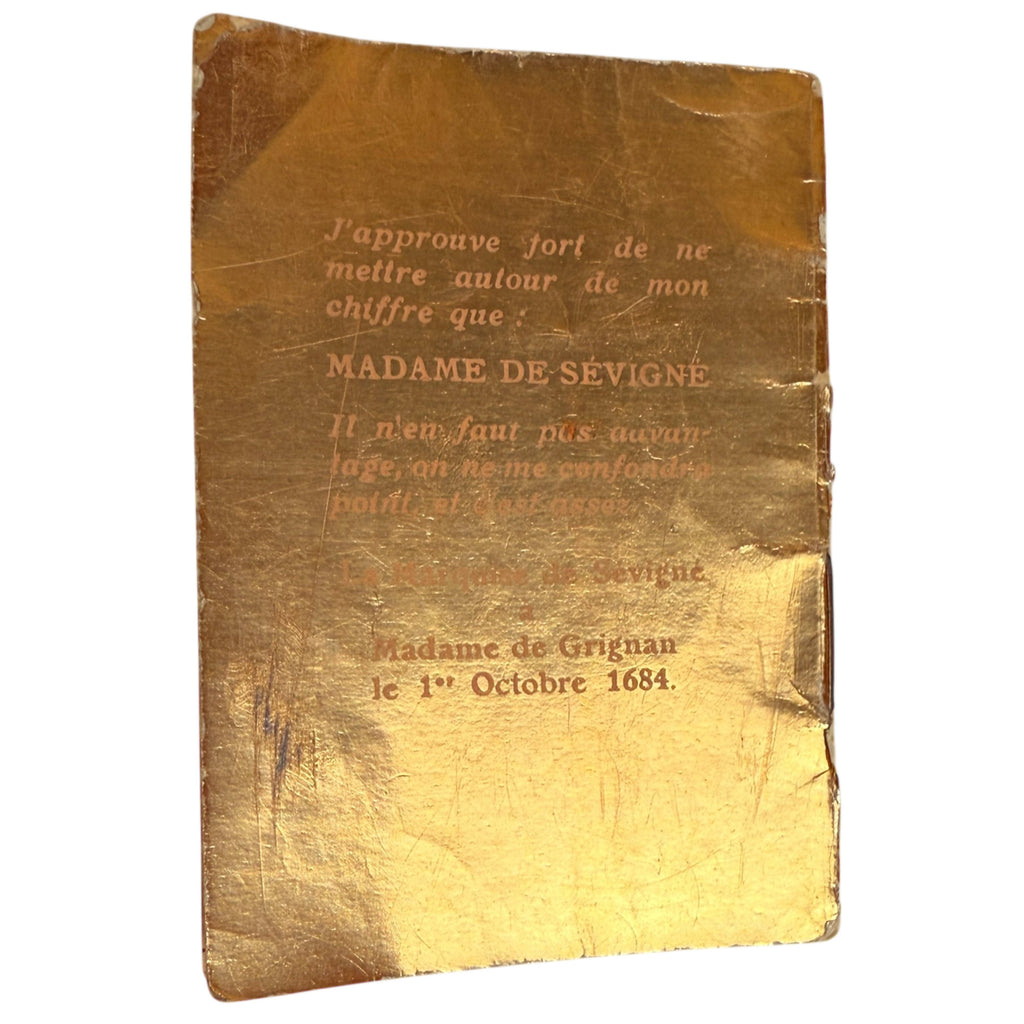 J'approuve fort de ne
mettre autour de mon
chiffre que :
MADAME DE SÉVIGNÉ
Il n'en faut pas davan-
tage, on ne me confondra
point, et c'est assez.
La Marquise de Sévigné
à
Madame de Grignan
le 1er Octobre 1684.